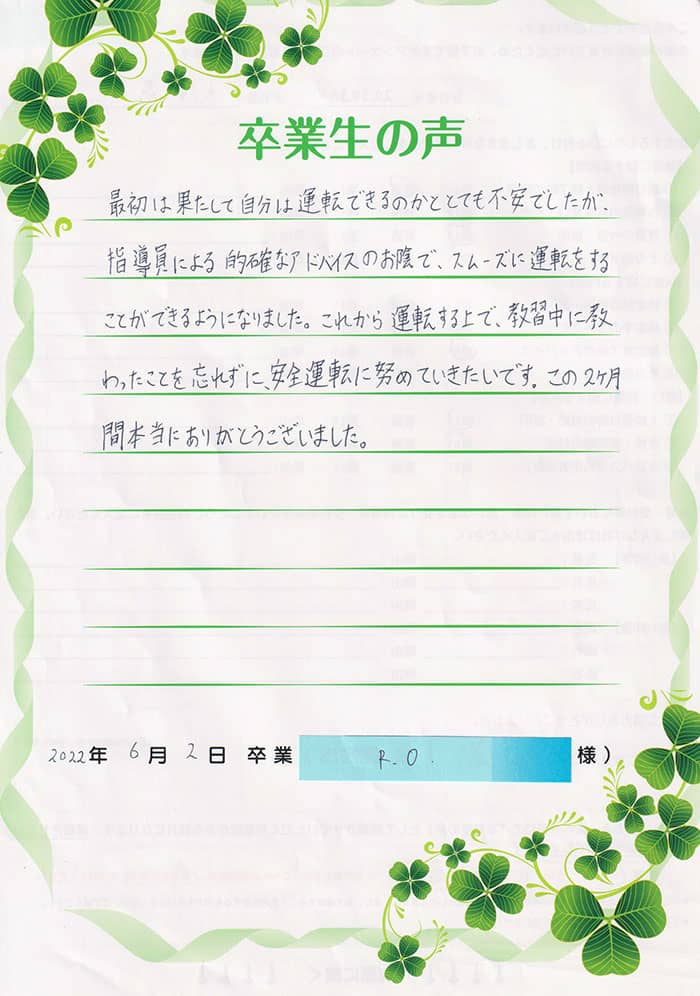 卒業生の声
最初は果たして自分は運転できるのかととても不安でしたが、
指導員による的確なアドバイスのお陰で、スムーズに運転をする
ことができるようになりました。これから運転する上で、教習中に教
わったことを忘れずに、安全運転に努めていきたいです。この2ヶ月
間本当にありがとうございました。
2022年 6月 2日 卒業 R.O. 様）